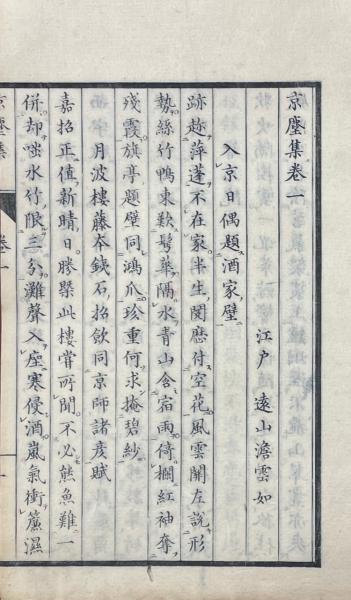 京塵集卷一
江戸 遠山澹雲如
入京日偶題酒家壁
跡趁萍蓬不在家半生閱歷付空花風雲關左說形
勢絲竹鴨東歎髩華隔水青山含宿雨倚欄紅袖奪
殘霞旗亭題壁同鴻爪珍重何求掩碧紗
月波樓藤本鐵石招飲同京師諸彦賦
嘉招正值新晴日勝槩此樓嘗所聞不必熊魚難一
併却咄水竹限三分灘聲入座寒侵酒嵐氣衝簾濕
京塵集
卷一
一